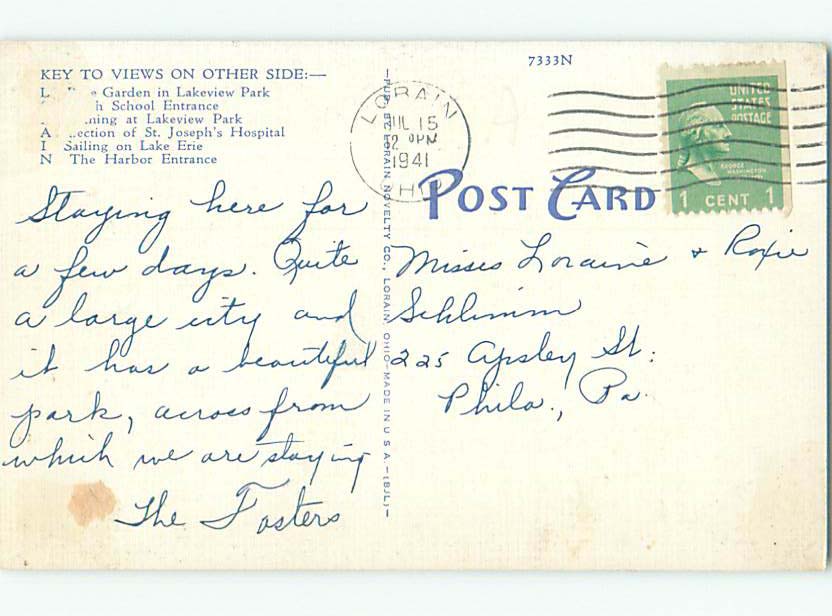 7333N
KEY TO VIEWS ON OTHER SIDE:—
L e Garden in Lakeview Park
h School Entrance
ning at Lakeview Park
A ection of St. Joseph's Hospital
I Sailing on Lake Erie
N The Harbor Entrance
LORAIN
JUL 15
2 PM
1941
OHIO
UNITED
STATES
POSTAGE
GEORGE
WASHINGTON
1 CENT 1
POST CARD
Staying here for
a few days. Quite
a large city and
it has a beautiful
park, across from
which we are staying
The Fosters
—PUB. BY LORAIN NOVELTY CO., LORAIN, OHIO—MADE IN U.S.A.—(BJL)—
Misses Loraine + Roxie
Schlimm
225 Apsley St.
Phila., Pa.